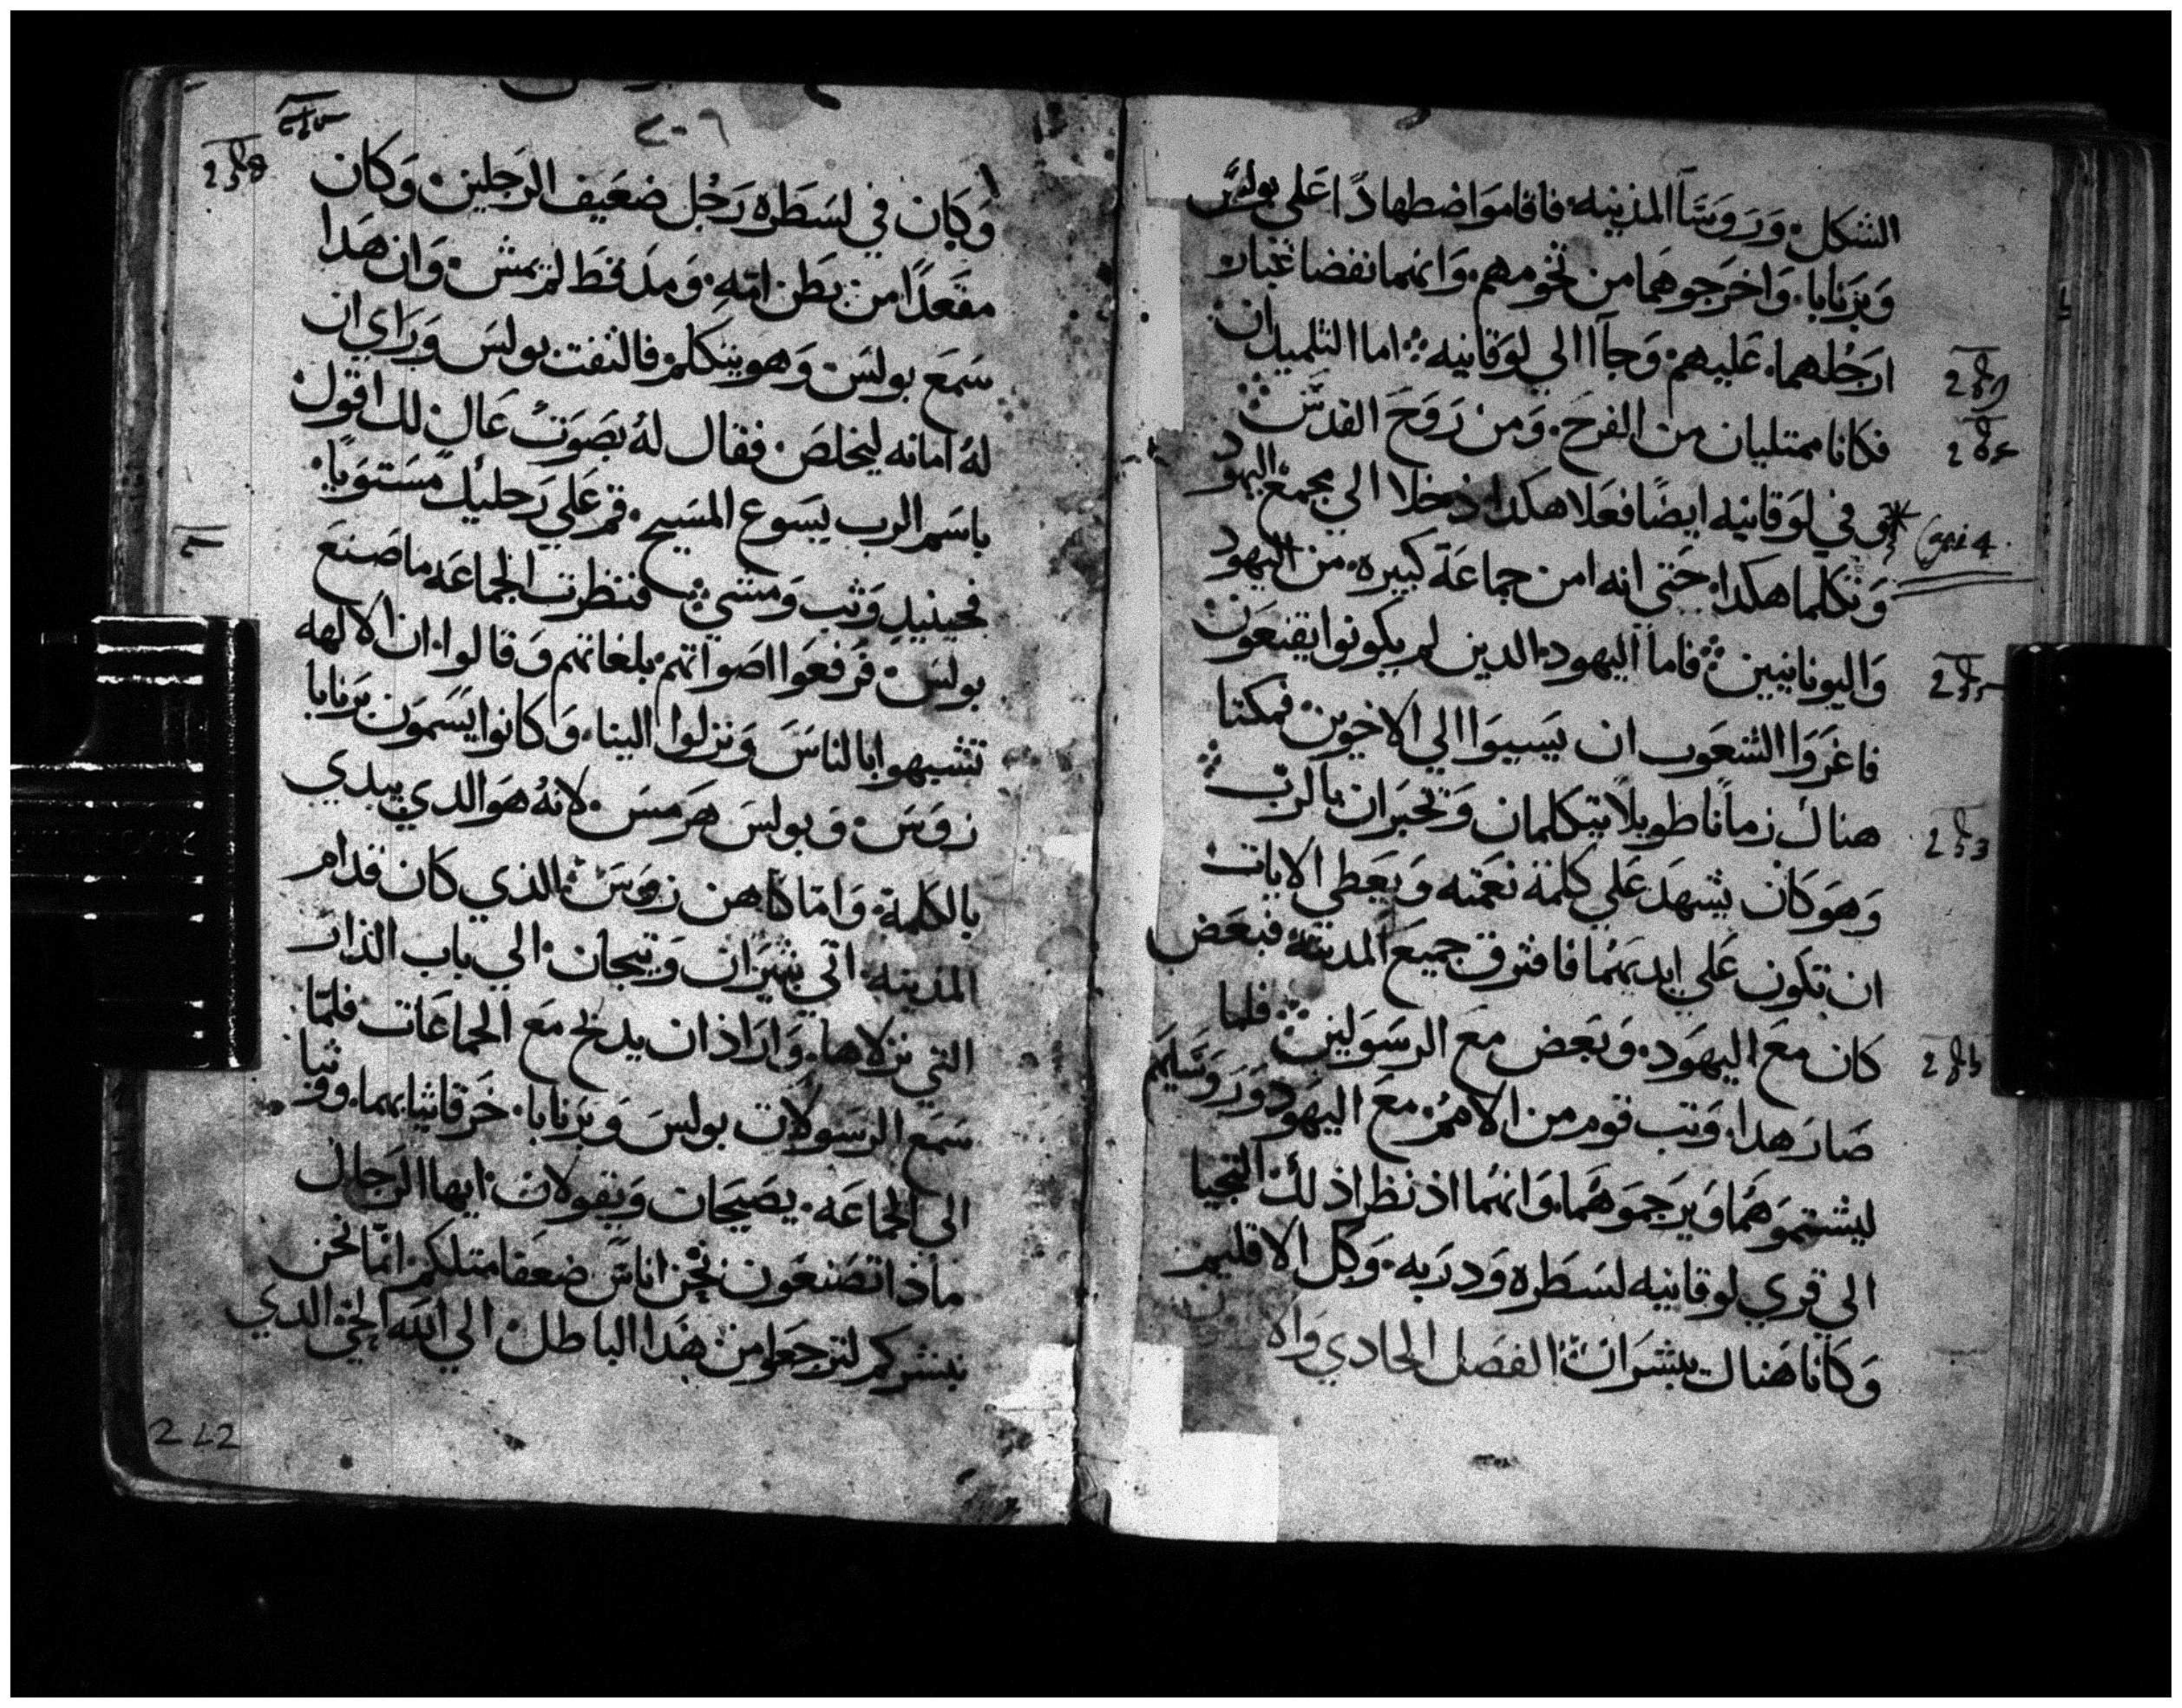 الشكل. وَرَوسَآ المدينه. فاقاموَا ضطهادًا عَلي بولسَ
وَبرَنابا. وَاخرَجوهمَا من تخومهم. وَانهما نفضا غبار
ارَجُلهما. عَليهم. وَجآا الي لوَقانيه. اما التلميدان
فكانا ممتليان من الفرحَ. وَمن رَوحَ القدسَ
وَفي لوَقانيه ايضًا فعَلا هكدا دخلا الي مجمعَ اليهود
Cap: 14.
وَتكلما هكدا. حَتي انه امن جماعَة كبيره. من اليهود
وَاليونانيين. فاما اليهود. الدين لم يكونوا يقنعَون
فاغرَوَا الشعَوب ان يسَييوَا الي الاخوين. فمكتا
هناك زمانًا طويلًا يتكلمان وَتخبرَان بالرب
وَهوَ كان يشهدَ عَلي كلمة نعَمته وَيعَطي الايات
ان تكون عَلي ايديهمُا فافترق جميعَ المدينة فبعَض
كان معَ اليهوَد. وَبعَض معَ الرسَولين. فلما
صَارَ هدا. وَتب قوم من الامم. معَ اليهود وَرَوسَايهم
ليشتموَهمَا وَيرَجموَهمَا. وَانهمُا اذ نظرَا ذلك التجيا
الي قري لوقانيه لسَطرَه وَدرَبه. وَكل الاقليم
وَكانا هَناك يبشرَان. الفصَل الحادي وَالا
٢٠٦
وَكان في لسَطرَه رَجُل ضعَيف الرَجلين. وَكان
مقعَدًا من بَطن امه. وَمدَ قط لم يمش. وَان هَدا
سَمعَ بولسَ. وَهو يتكلم. فالتفت بولسَ وَرَاي ان
لهُ امانه ليخلصَ. فقال لهُ بصَوَت عَال لك اقول
باسَم الرب يسَوع المسَيح. قم عَلي رَجليك مسَتوَيا.
فحينيدٍ وَثب وَمشي. فنظرَت الجماعَه ما صَنعَ
بولسَ. فرَفعَوا اصَواتهم. بلغاتهم وَقالوا. ان الالهه
تشبهوا بالناسَ وَنزلوا الينا. وَكانوا يسَمون برَنابا
زوسَ. وَبولسَ هرَمسَ. لانهُ هوَ الدي يبدي
بالكلمة. وَامّا كاهن زوسَ. الذي كان قدام
المدينه. اتي بثيرَان وَتيجان. الي باب الدارَ
التي نزلاها. وَارَاد ان يدبح معَ الجماعَات فلمّا
سَمعَ الرَسَولان بولسَ وَبرَنابا. خرَقا ثيابهما. وَوثبا
الي الجماعَه. يصَيحَان وَيقولان. ايها الرَجال
ماذا تصَنعَون. نحن اناسَ ضعَفا متلكم. انما نحن
نبشركم لترَجعَوا من هَدا الباطل. الي الله الحي الدي
212